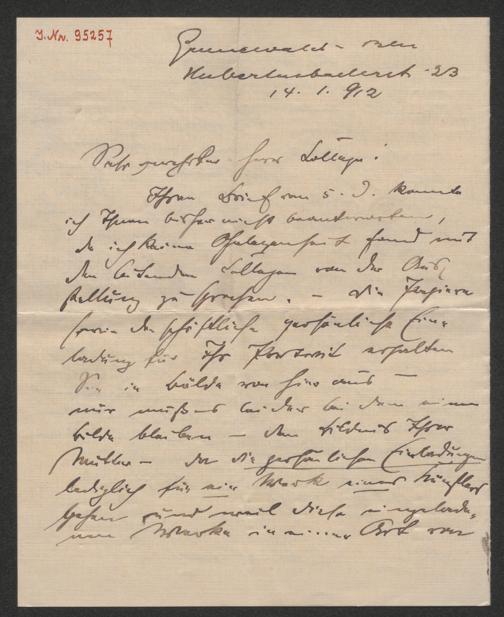 J. Nr. 95257
Grunewald - Bln
Hubertusbaderst. 23
14. 1. 912
Sehr geehrter Herr Collega!
Ihren Brief vom 5. d. konnte
ich Ihnen bisher nicht beantworten,
da ich keine Gelegenheit fand mit
den leitenden Collegen von der Aus-
stellung zu sprechen. – Die Papiere
sowie die schriftliche persönliche Ein-
ladung für Ihr Portrait erhalten
Sie in Bälde von hier aus –
nur muß es leider bei dem einen
Bilde bleiben – dem Bildnis Ihrer
Mutter – da die persönlichen Einladungen
lediglich für ein Werk eines Künstlers
gehen und weil diese eingelade-
nen Werke in einer Art von